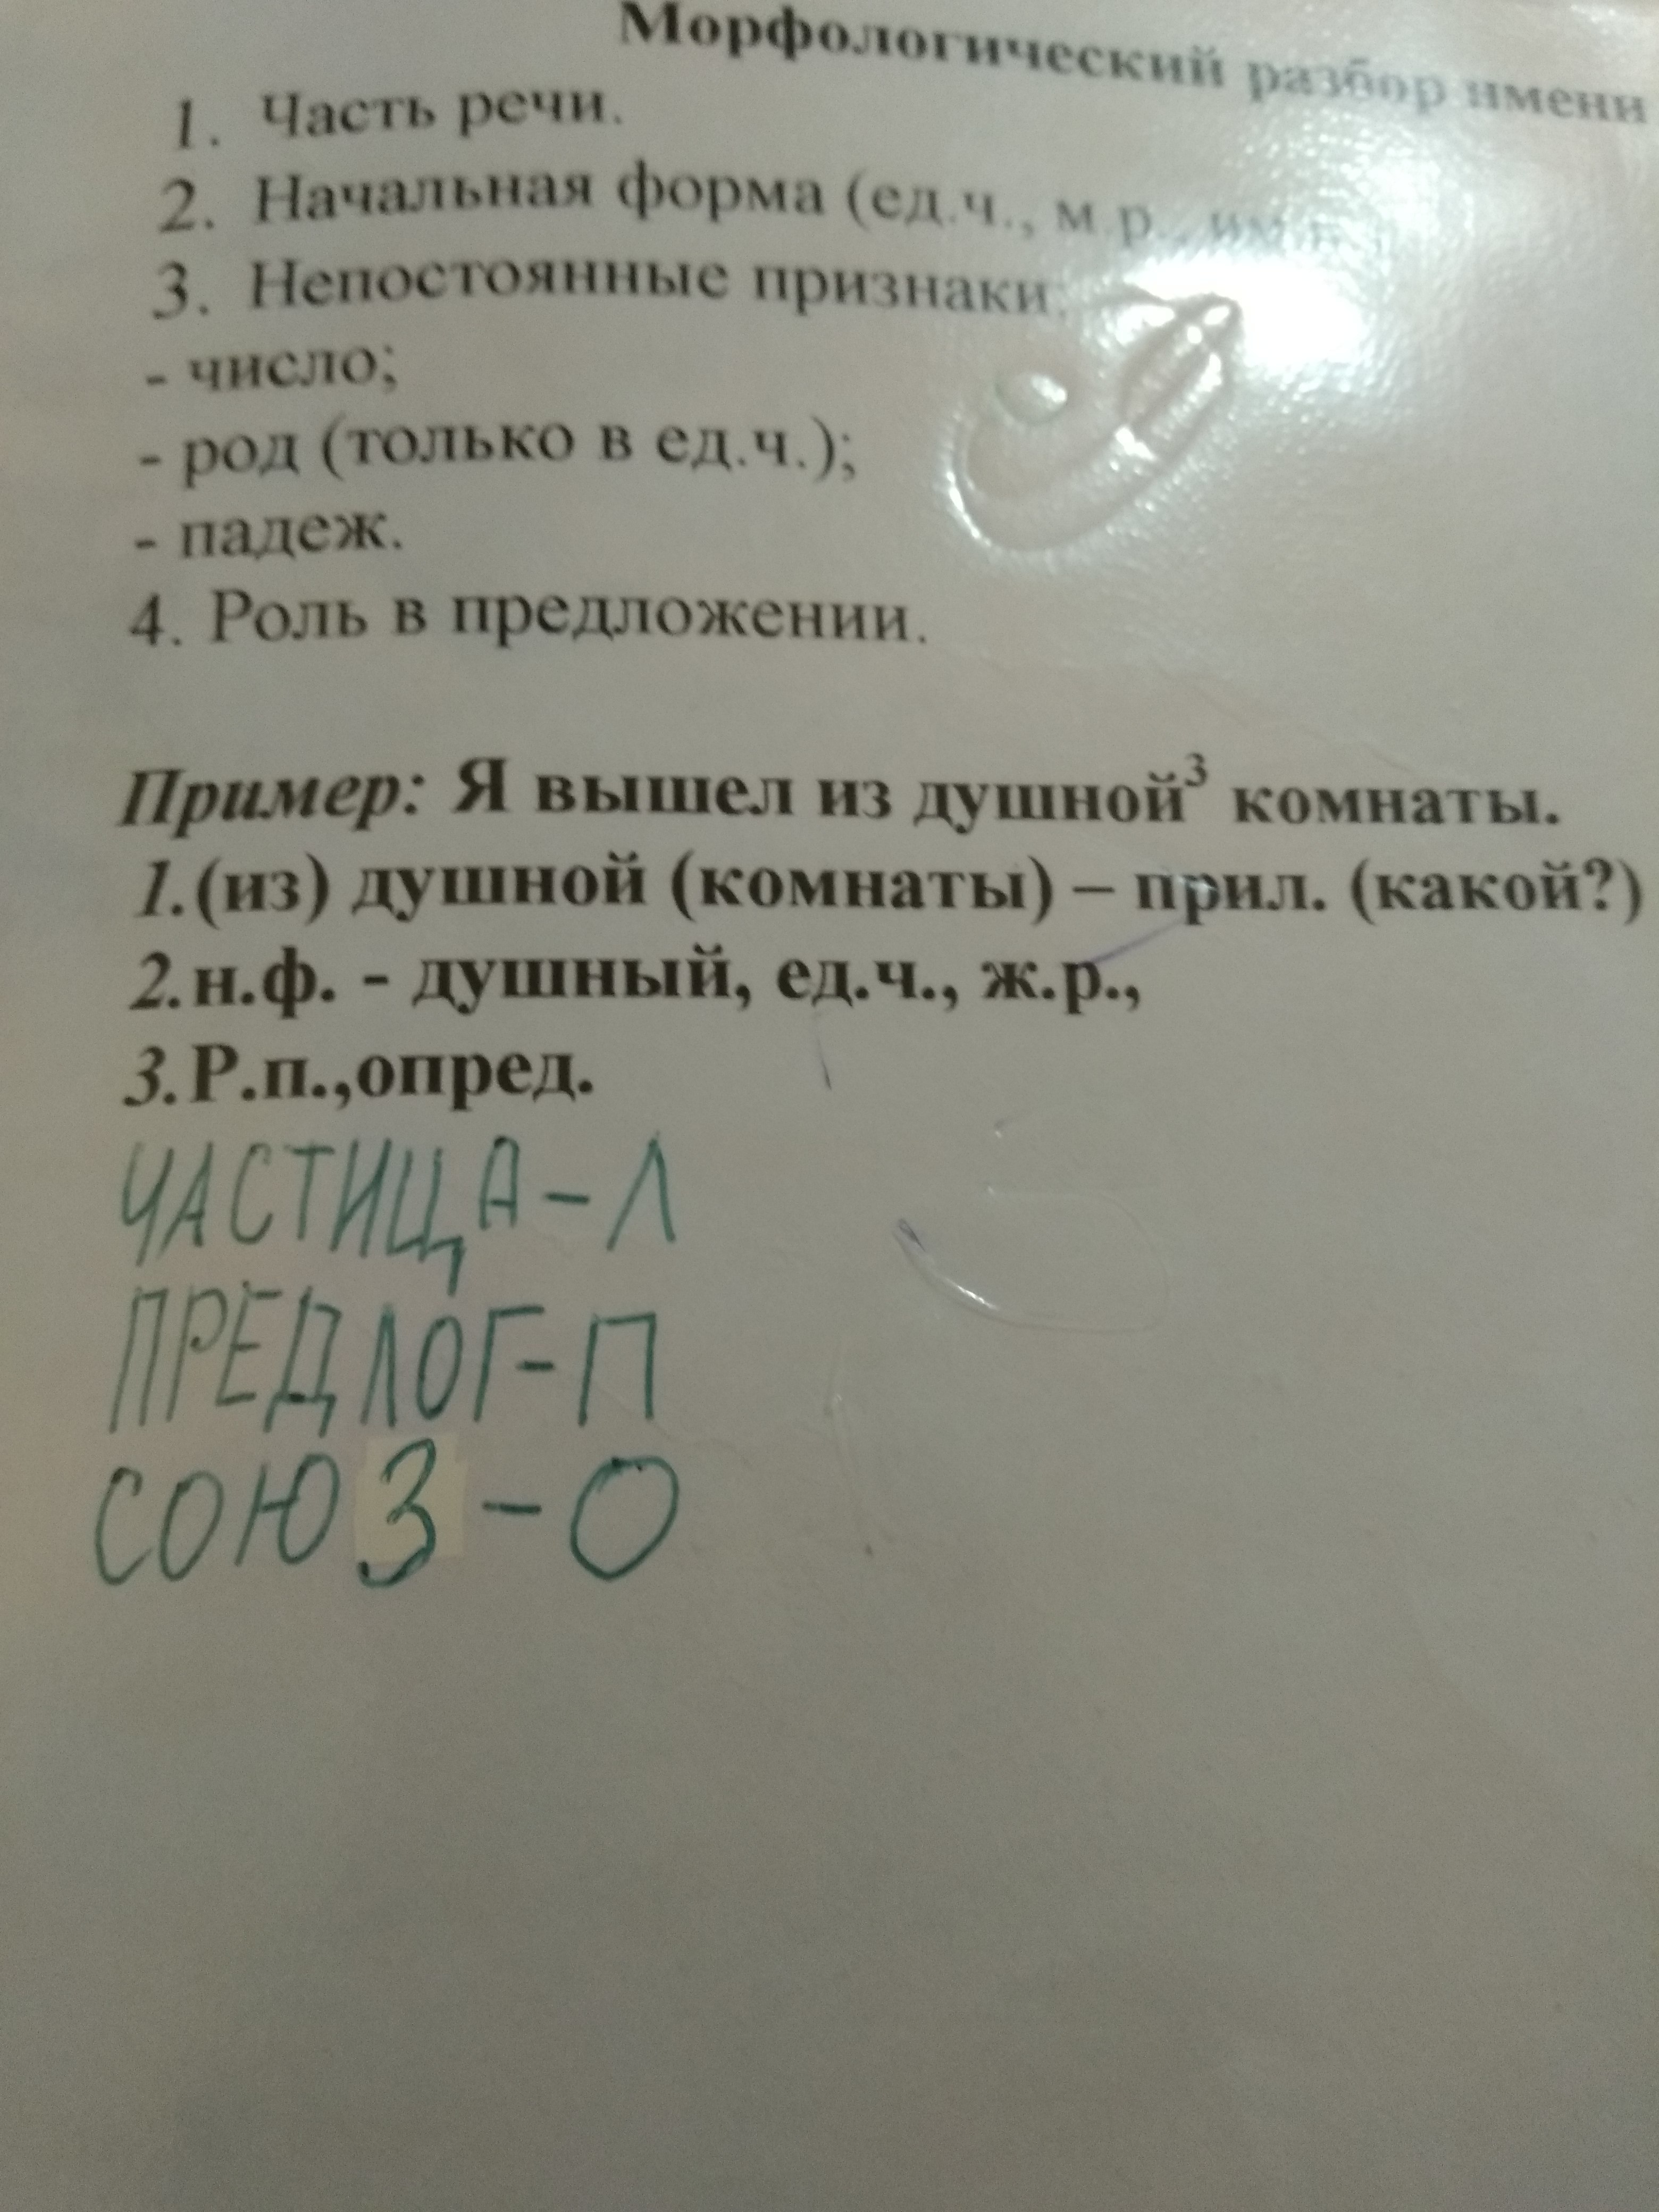 Морфологический разбор имени
1. Часть речи.
2. Начальная форма (ед.ч., м.р.,
3. Непостоянные признаки:
- число;
- род (только в ед.ч.);
- падеж.
4. Роль в предложении.
Пример: Я вышел из душной³ комнаты.
1.(из) душной (комнаты) – прил. (какой?)
2.н.ф. - душный, ед.ч., ж.р.,
3.Р.п.,опред.
ЧАСТИЦА-Л
ПРЕДЛОГ-П
СОЮЗ-О